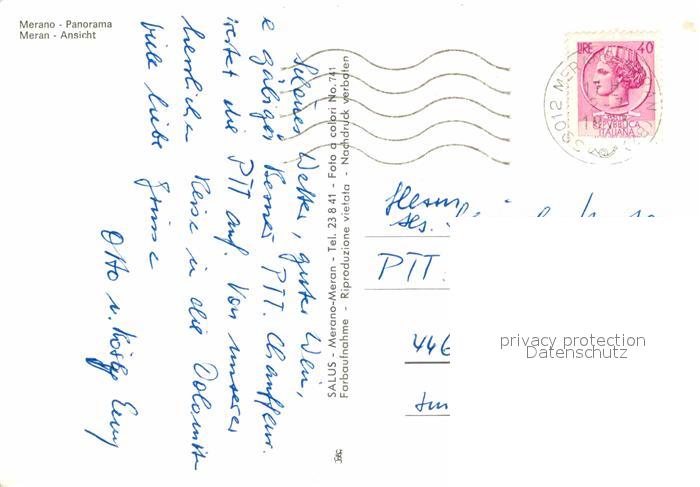 Merano - Panorama
Meran - Ansicht
Schönes Wetter, guter Wein,
e gäbiger Berner PTT. Chauffeur.
die PTT auf. Von unserer
herrlichen Reise in die Dolomiten
viele liebe Grüsse
Otto u.
SALUS - Merano-Meran - Tel. 23 8 41 - Foto a colori No. 741
Farbaufnahme - Riproduzione vietata - Nachdruck verboten
LIRE 40
POSTE
REPVBBLICA
ITALIANA
39012 MERAN
Herrn
PTT.
446
privacy protection
Datenschutz